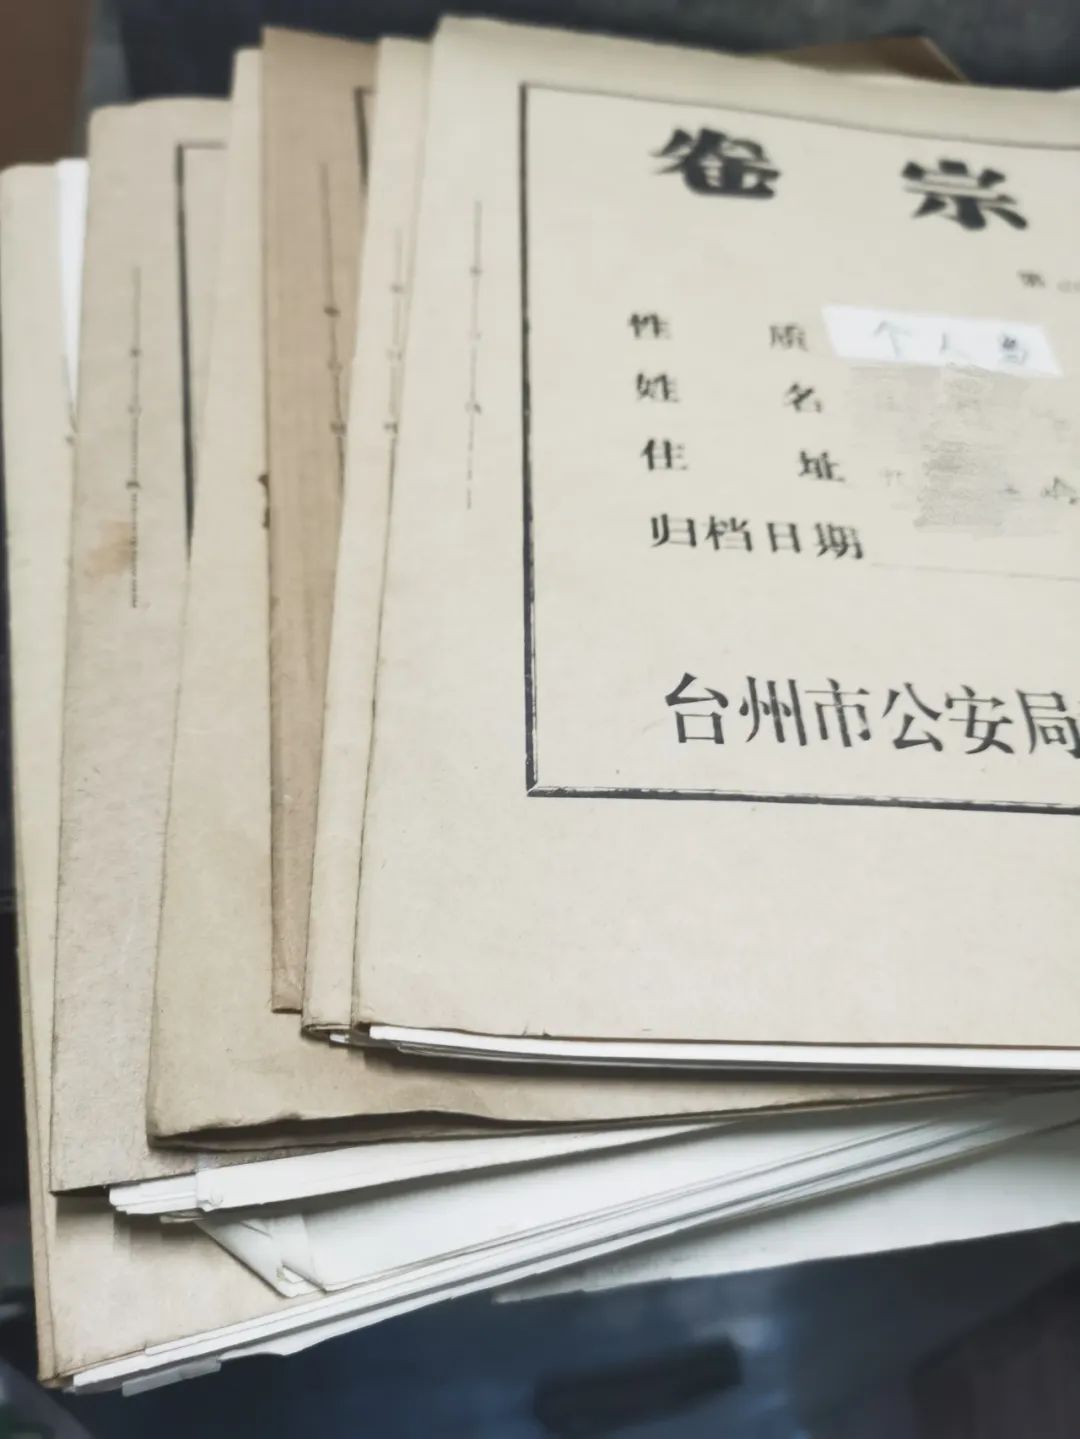 卷 宗
第
性 质 个人
姓 名
住 址
归档日期
台州市公安局